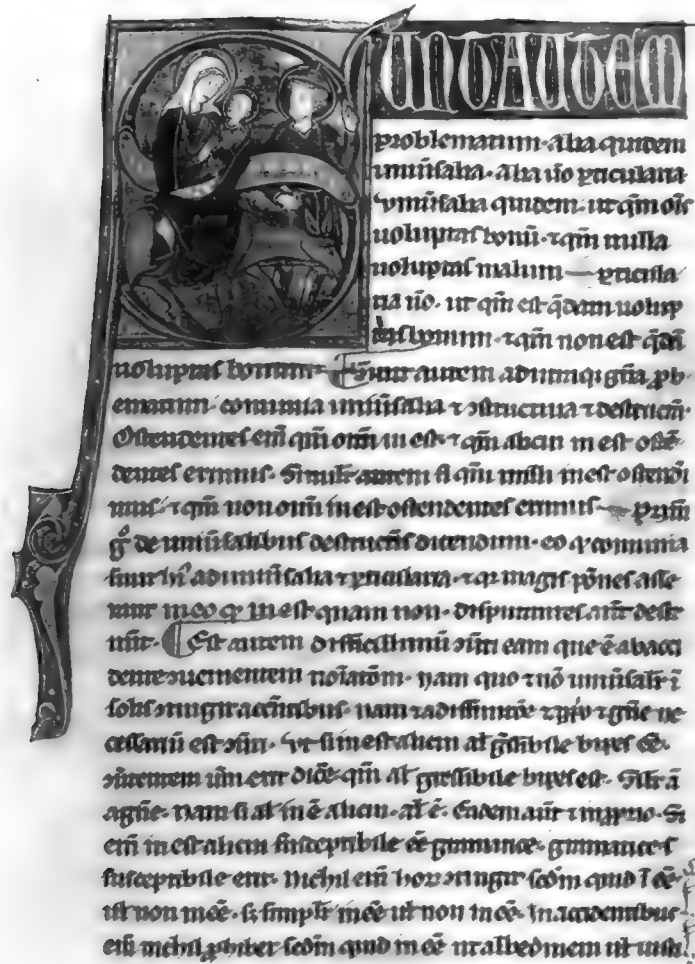 SUNT AUTEM
problematum. alia quidem
uniũsalia. alia ũo pticularia
Vniũsalia quidem. ut qm̃ oĩs
uoluptas bonũ. ⁊ qm̃ nulla
uoluptas malum pticula
ria ũo. ut qm̃ est q̃dam uolup
tas bonum. ⁊ qm̃ non est q̃dã
uoluptas bonum. Sunt autem ad utraq; gñа ꝓb
ematum. comunia uniũsalia ⁊ ɔstructiua ⁊ destructiã
Ostendentes eni͂ qm̃ omĩ in est. ⁊ qm̃ alicui in est ostẽ
dentes erimus. Similit̃ autem si qm̃ nulli in est ostendi
mus. ⁊ qm̃ non omĩ in est ostendentes erimus. Primũ
g̊ de uniũsalibus destructiĩs dicendum. eo ꝙ comunia
sunt hĩ ad uniũsalia ⁊ pticularia. ⁊ ꝙ magis põnes asse
runt in eo ꝙ in est quam non. disputantes aũt destr
uũt. Est autem difficillimũ ɔũti eam que ẽ ab acci
dente ɔuenientem noĩatõm. nam quo ⁊ nõ uniũsalit̃ ĩ
solis ɔtingit accñtibus. nam ⁊ a diffinitõe ⁊ ꝓpo ⁊ gñe ne
cessariũ est ɔũti. Vt si in est alicui al̃ g̃ssibile bipes eẽ.
ɔũtentem ũm erit dicẽ qm̃ al̃ gressibile bipes est. Silr̃ ã
a gñe. nam si al̃ in ẽ alicui. al̃ ẽ. Eadem aũt ⁊ in ꝓprio. Si
eni͂ in est alicui susceptibile eẽ gramatice. gramatice
susceptibile erit. Nichil eni͂ hor̃ ɔtingit scdm̃ quid ĩ eẽ
uł non in eẽ. s; simplr̃ in eẽ uł non in eẽ. In accidentibus
eni͂ nichil ꝓhibet scdm̃ quid in eẽ ut albedinem uł iusti